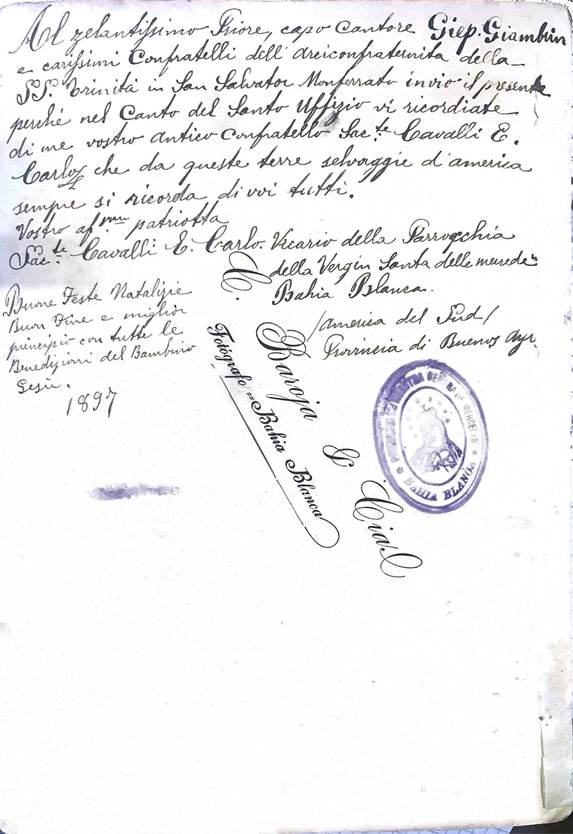 Al zelantissimo Priore, capo Cantore Giep. Giambrin
e carissimi Confratelli dell'Arciconfraternita della
SS. Trinità in San Salvator Monferrato invio il presente
perché nel Canto del Santo Uffizio vi ricordiate
di me vostro antico confratello Sac.te Cavalli E.
Carlo, che da queste terre selvaggie d'america
sempre si ricorda di voi tutti.
Vostro af.mo patriotta
Sac.te Cavalli E. Carlo. Vicario della Parrocchia
della Vergin Santa delle mercede
Bahia Blanca.
/america del Sud/
Provincia di Buenos Ayr
Buone Feste Natalizie
Buon Fine e miglior
principio con tutte le
Benedizioni del Bambino
Gesù.
1897
C. Baroja y Cia
Fotógrafo = Bahia Blanca
BAHIA BLANCA